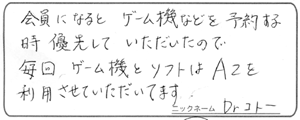 会員になると ゲーム機などを 予約する
時 優先して いただいたので
毎回 ゲーム機とソフトは A2を
利用させていただいてます
ニックネーム Dr.コトー